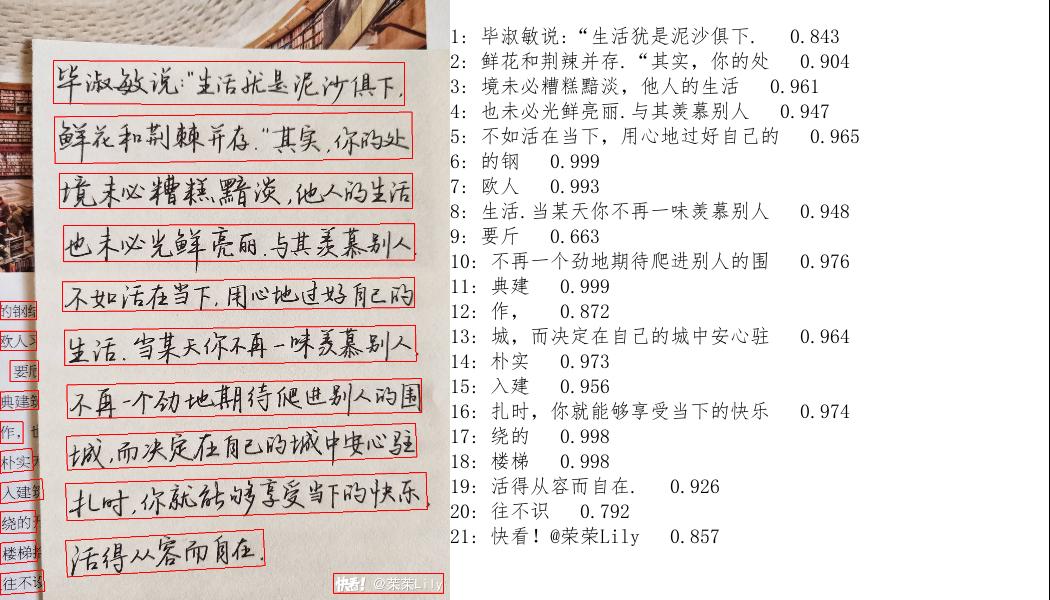 毕淑敏说:"生活就是泥沙俱下,
鲜花和荆棘并存."其实,你的处
境未必糟糕黯淡,他人的生活
也未必光鲜亮丽.与其羡慕别人
不如活在当下,用心地过好自己的
生活.当某天你不再一味羡慕别人
不再一个劲地期待爬进别人的围
城,而决定在自己的城中安心驻
扎时,你就能够享受当下的快乐
活得从容而自在.
的钢
欧人
要
典建
作,
朴实
入建
绕的
楼梯
往不
快看! @荣荣Lily
1: 毕淑敏说:“生活犹是泥沙俱下. 0.843
2: 鲜花和荆辣并存.“其实,你的处 0.904
3: 境未必糟糕黯淡,他人的生活 0.961
4: 也未必光鲜亮丽.与其羡慕别人 0.947
5: 不如活在当下,用心地过好自己的 0.965
6: 的钢 0.999
7: 欧人 0.993
8: 生活.当某天你不再一味羡慕别人 0.948
9: 要斤 0.663
10: 不再一个劲地期待爬进别人的围 0.976
11: 典建 0.999
12: 作, 0.872
13: 城,而决定在自己的城中安心驻 0.964
14: 朴实 0.973
15: 入建 0.956
16: 扎时,你就能够享受当下的快乐 0.974
17: 绕的 0.998
18: 楼梯 0.998
19: 活得从容而自在. 0.926
20: 往不识 0.792
21: 快看!@荣荣Lily 0.857